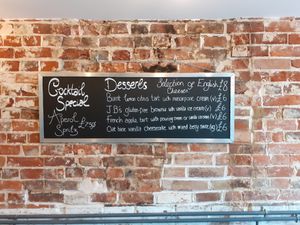 Cocktail
Special
Aperol
Spritz £7.95
Desserts
Selection of English £8
Cheeses
Burnt lemon citrus tart with marscapone cream (v) £6
JB's gluten free brownie with vanilla ice cream (v) £6
French apple tart with pouring cream or vanilla cream (v) £6
Oat base vanilla cheesecake with mixed berry sauce (vg) £6